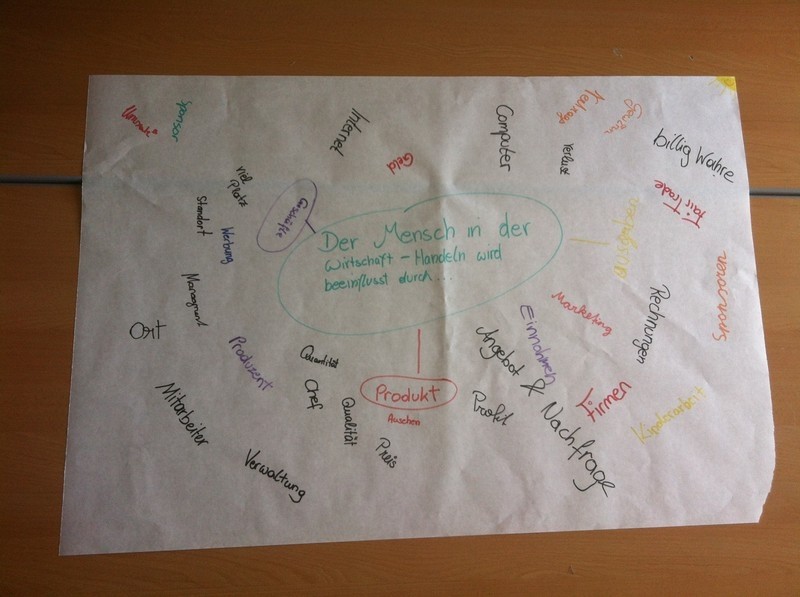 Sponsor
Internet
Geld
Computer
Verlust
billig Wahre
Fair Trade
viel
Platz
Standort
Werbung
Geschäfte
Der Mensch in der
Wirtschaft - Handeln wird
beeinflusst durch...
Ausgaben
Marketing
Rechnungen
Einnahmen
Angebot & Nachfrage
Ort
Produzent
Quantität
Chef
Qualität
Produkt
Aussehen
Preis
Profit
Firmen
Kinderarbeit
Mitarbeiter
Verwaltung